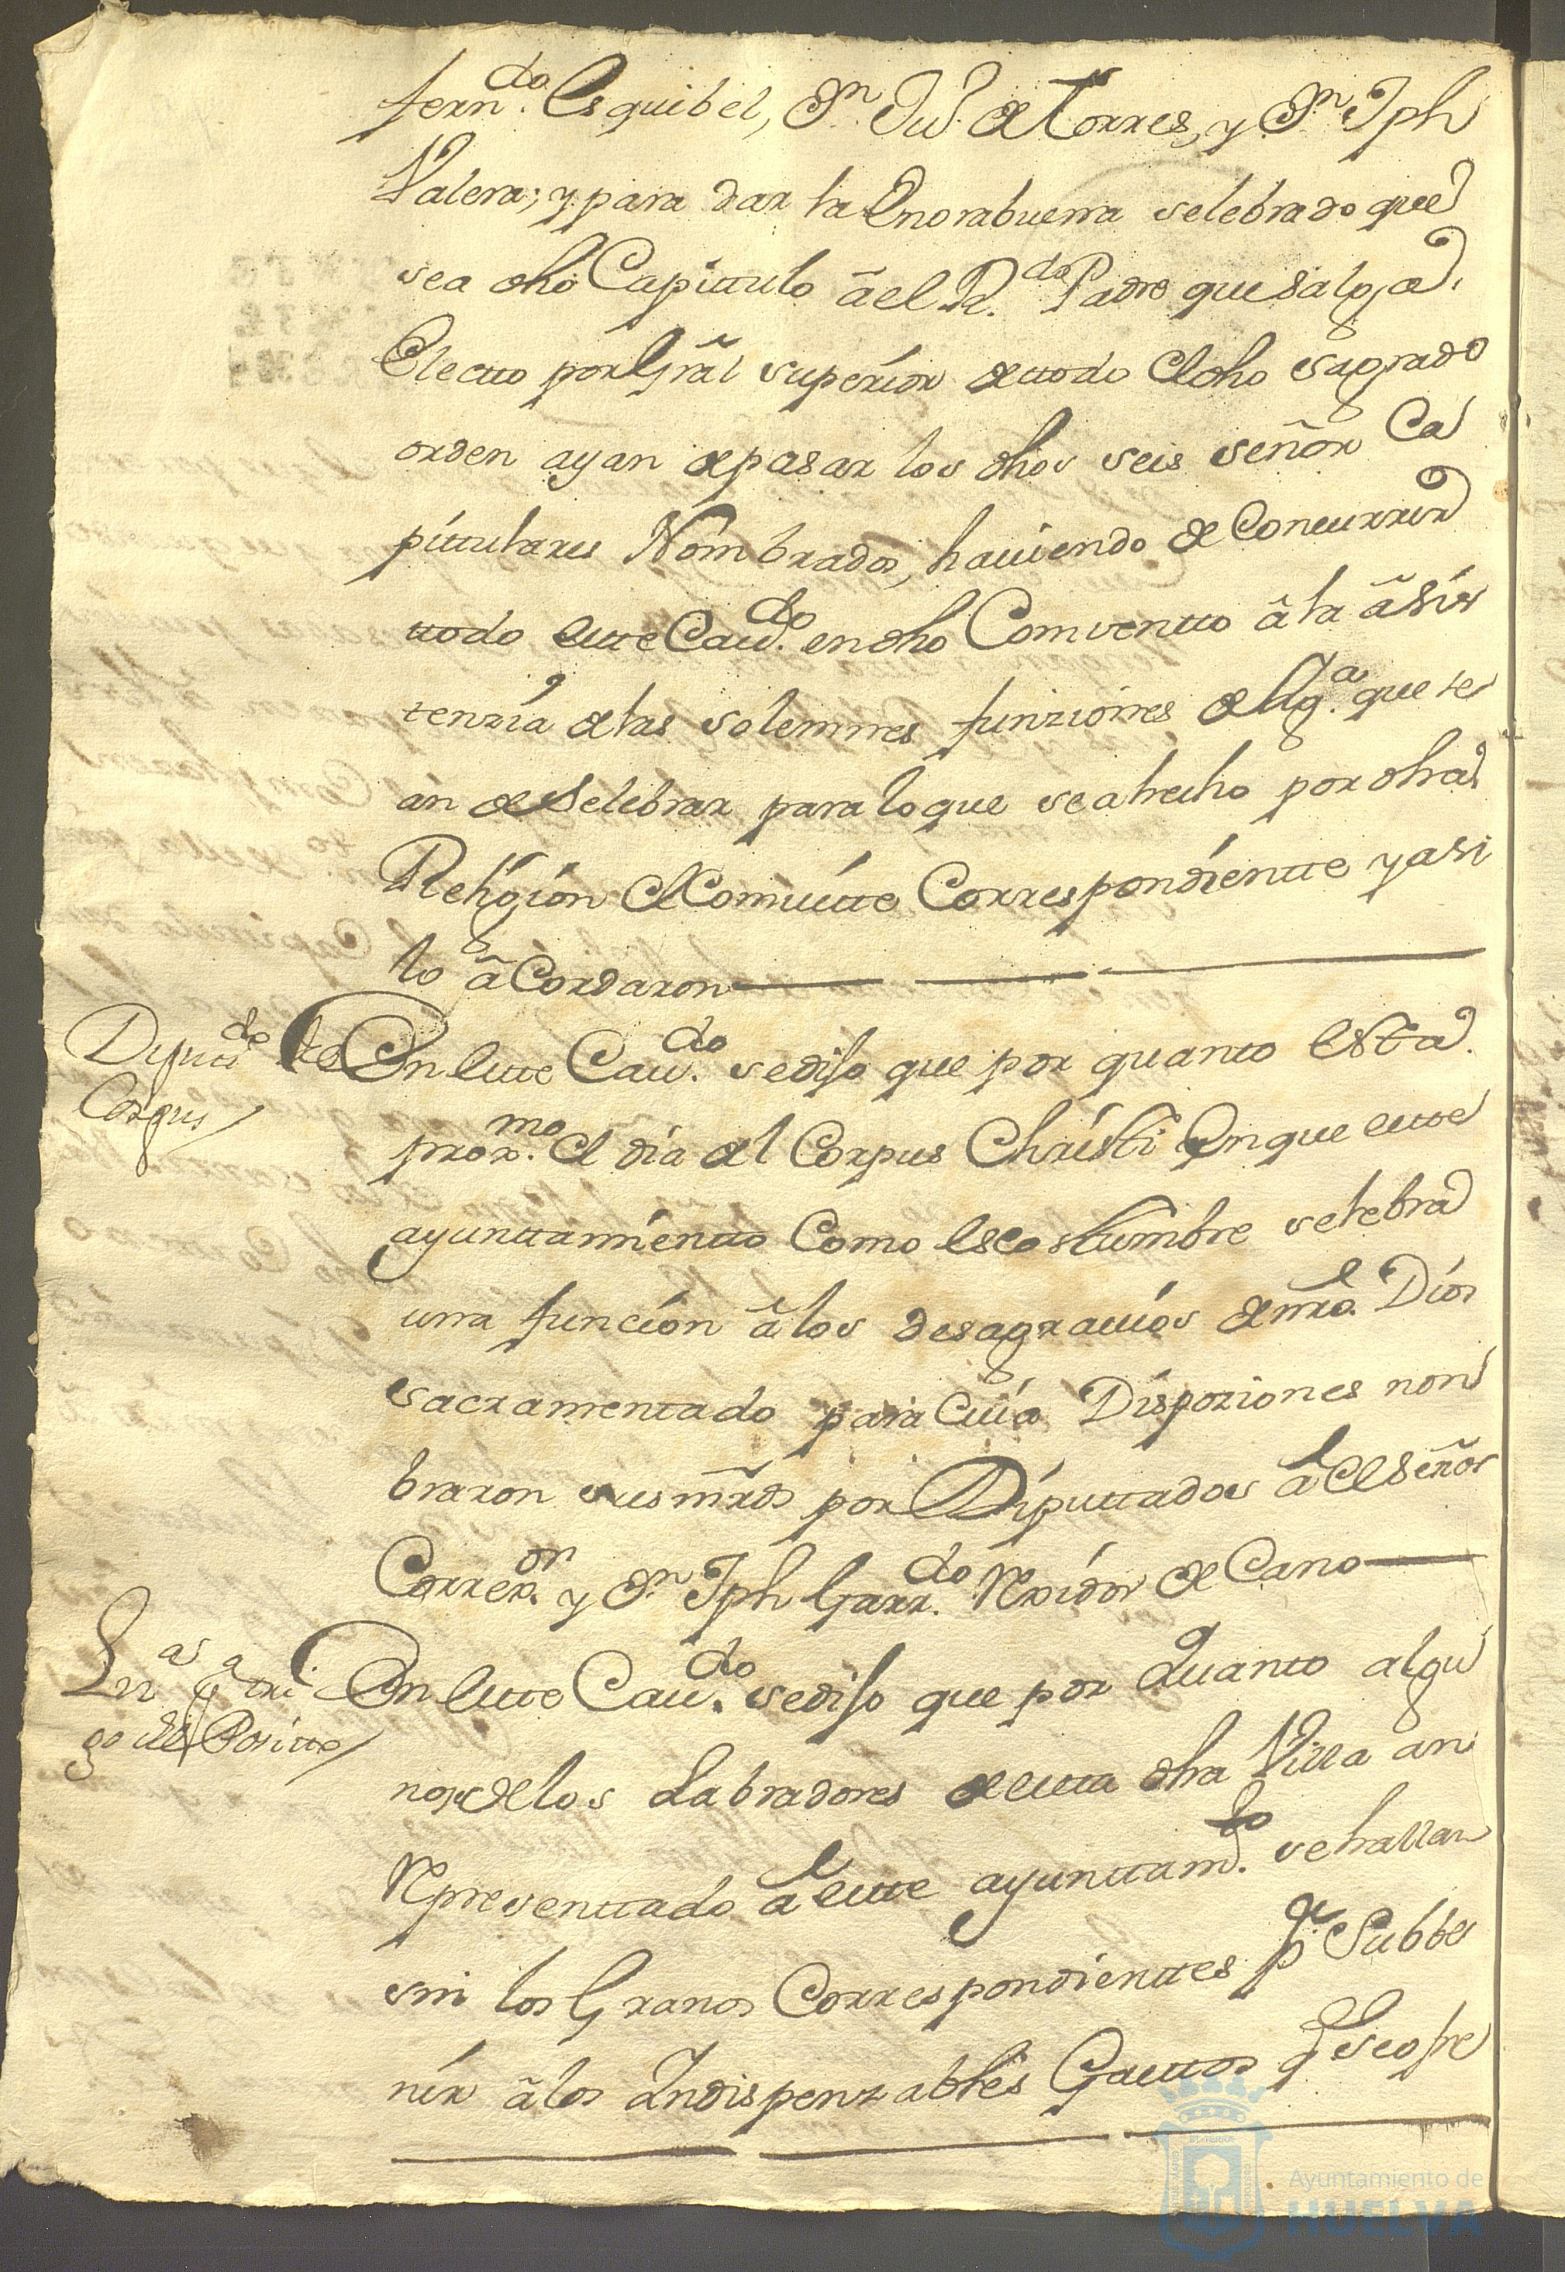 fern.do Esquibel, Dn. Ju.o de Torres, y Dn. Jph
Valera; y para dar la Enorabuena selebrado que
sea dho Capittulo â el R.do Padre que salga
Electto por Grâl superior de ttodo el dho sagrado
orden ayan de pasar los dhos seis señor Ca
pittulares Nombrados, haviendo de Concurrir
ttodo estte Cav.do en dho Comventto â la âsis
tenzia de las solemnes funziones de Yg.a que se
an de Selebrar para lo que se a hecho por dha
Religion el Comvitte Correspondientte y asi
lo âCordaron
Diputa.do de
Corpus
En estte Cav.do se dijo que por quanto esta
prox.mo el dia del Corpus Christi En que estte
ayunttamientto Como es costumbre selebra
una funcion â los desagravios de nro. Dios
sacramentado para Cuia Disposiones nom
braron sus mrds por Diputtados â el señor
Correx.or y Dn. Jph Garr.do Rexidor de Cano
go del Positto
En estte Cav.do se dijo que por Quanto algu
nos de los Labradores de estta dha Villa an
Representtado â estte ayunttam.to se hallan
sin los Granos Correspondienttes p.a Subbe
nir â los Indispenzables Gasttos q.e se ofre
Ayuntamiento de
HUELVA